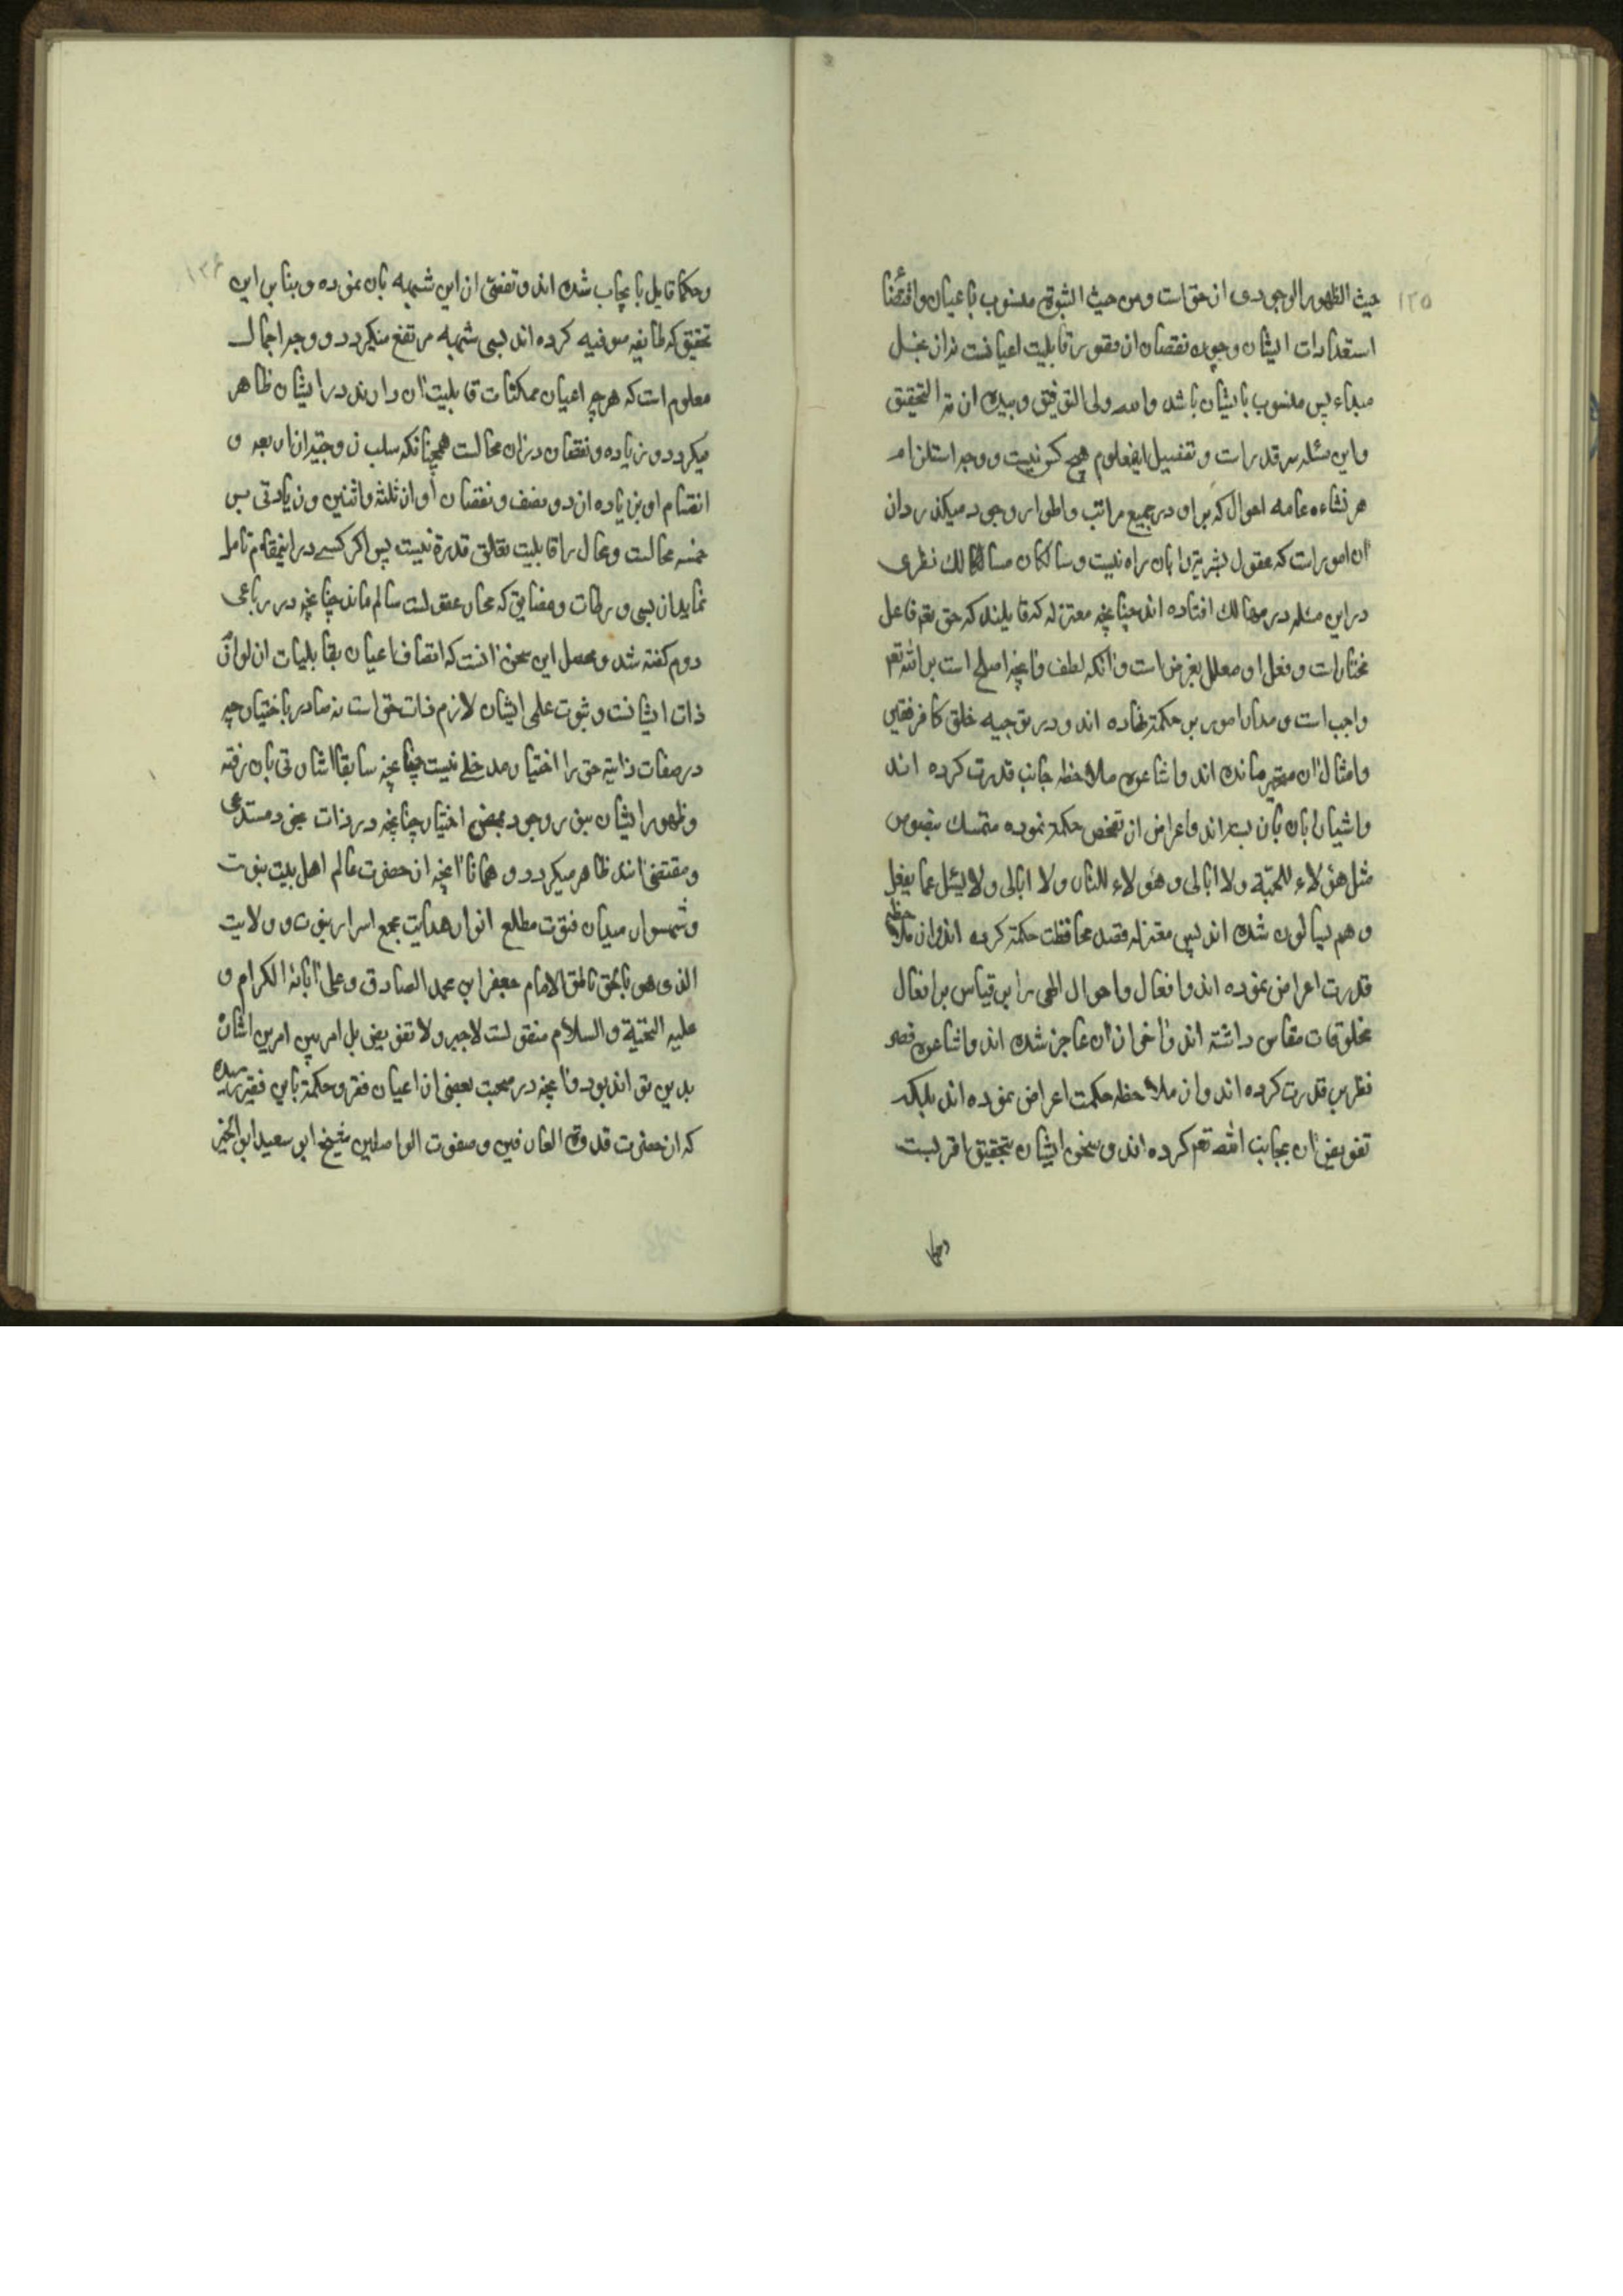 ۱۳۵
حیث الظهور الوجودی از حق است و من حیث الثبوت منسوب باعیان و اقتضا
استعدادات ایشان و چون نقصان از قصور قابلیت اعیانست نه از بخل
مبداء پس منسوب بایشان باشد والله ولی التوفیق و بیده ازمة التحقیق
و این مسئله سر قدر است و تفصیل معلوم هیچ کس نیست و وجه استلزام
هر نشاءه عامه احوال که بر او در جمیع مراتب و اطوار وجود میکذرد از
آن امور است که عقول بشریة را بآن راه نیست و سالکان مسالک نظری
در این مسئله در مهالک افتاده اند چنانچه معتزله که قایلند که حق تعم فاعل
مختار است و فعل او معلل بغرض است و آنکه لطف و آنچه اصلح است بر الله تعم
واجب است و مدار امور بر حکمة نهاده اند و در توجیه خلق کافر فقیر
و امثال آن متحیر مانده اند و اشاعره ملاحظه جانب قدرت کرده اند
و اعراض از تفحص حکمة نموده متمسک بنصوص
مثل هؤلاء للجنّة ولا ابالی و هؤلاء للنار ولا ابالی و لا یسئل عما یفعل
و هم یسالون شده اند پس معتزله قصد محافظت حکمة کرده اند و از ملاحظه
قدرت اعراض نموده اند و افعال و احوال الهی را بر قیاس بر افعال
مخلوقات مقاس داشته اند و آخر از آن عاجز شده اند و اشاعره قصر
نظر بر قدرت کرده اند و از ملاحظه حکمت اعراض نموده اند بلکه
تفویض آن بجانب الله تعم کرده اند و سخن ایشان بتحقیق اقربست
وحکما
۱۳۶
وحکما قایل بایجاب شده اند و تفصی از این شبهه بآن نموده و بنا بر این
تحقیق که طایفه صوفیه کرده اند بسی شبهه مرتفع میکردد و وجه اجمال
معلوم است که هر چه اعیان ممکنات قابلیت آن دارند در ایشان ظاهر
میکردد و زیاده و نقصان در آن محالست همچنانکه سلب زوجیّة از اربعه و
انقسام او بزیاده از دو نصف و نقصان او از ثلثه و اثنین و زیادتی بر
خمسه محالست و محال را قابلیت تعلق قدرة نیست پس اکر کسی در اینمقام تامل
نماید از بسی ورطات و مضایق که محار عقولست سالم ماند چنانچه در رباعی
دوم کفته شد و محصل این سخن آنست که اتصاف اعیان بقابلیات از لوازم
ذات ایشانست و ثبوت علمی ایشان لازم ذات حق است نه صادر باختیار چه
در صفات ذاتیة حق را اختیار مدخلی نیست چنانچه سابقا اشارتی بآن رفته
و ظهور ایشان بنور وجود بمحض اختیار چنانچه در ذات بخود مستدعی
و مقتضی آنند ظاهر میکردد و همانا آنچه از حضرت عالم اهل بیت نبوت
و شهسوار میدان فتوت مطلع انوار هدایت مجمع اسرار نبوت و ولایت
الذی هو بالحق ناطق الامام جعفر ابن محمد الصادق و علی آبائه الکرام و
علیه التحیّة و السلام منقولست لا جبر ولا تفویض بل امر بین امرین اشارة
بدین تواند بود و آنچه در صحبت بعضی از اعیان فقر و حکمة باین فقیر رسیده
که از حضرت قدوة العارفین و صفوت الواصلین شیخ ابو سعید ابو الخیر